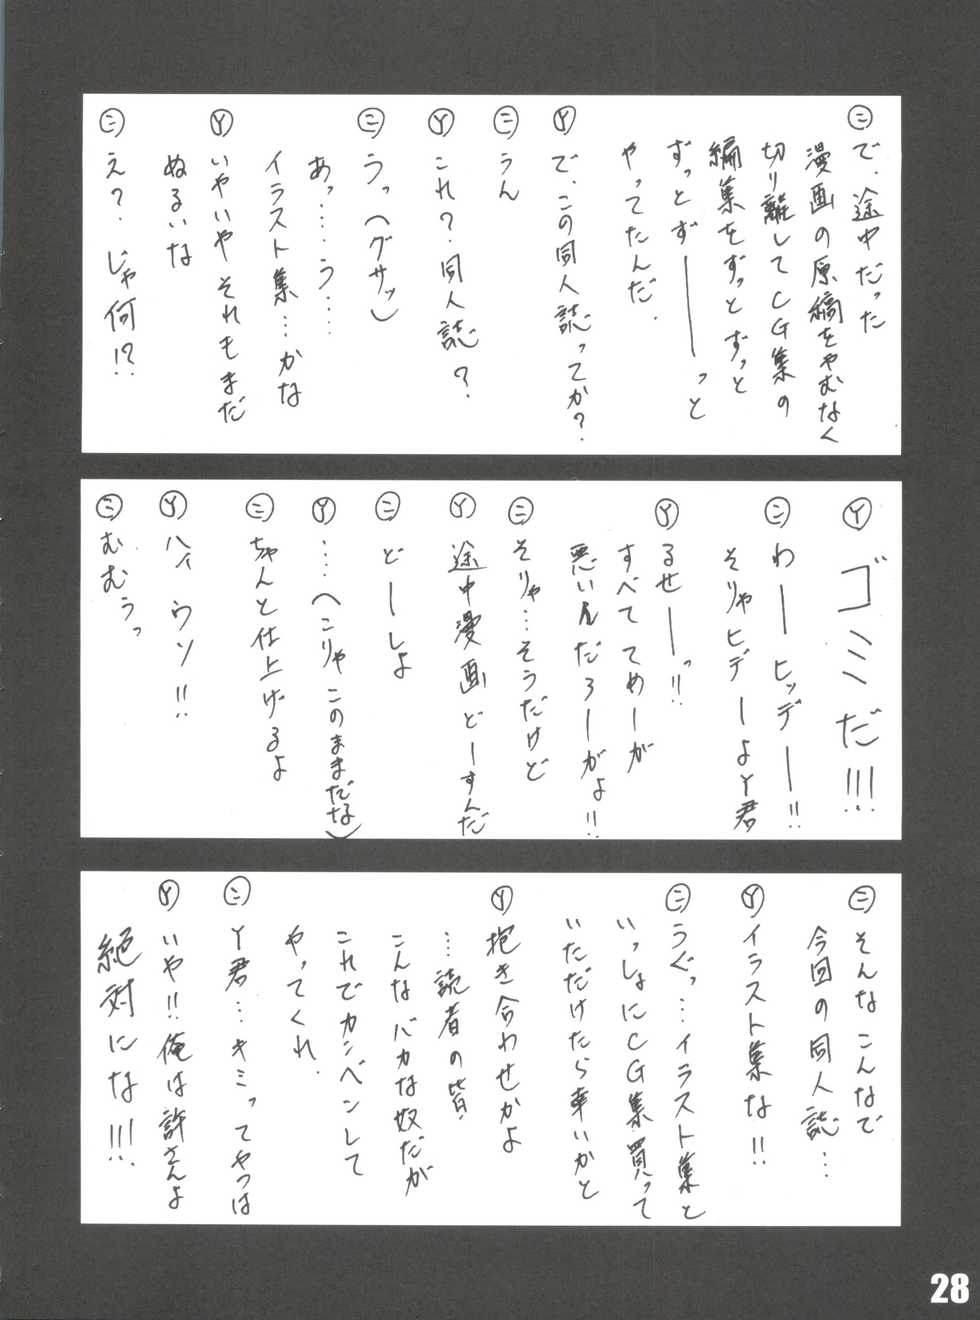 ㊁で、途中だった
漫画の原稿をやむなく
切り離してCG集の
編集をずっとずっと
ずっとずーーーっと
やってたんだ.
Ⓨで、この同人誌ってか?
㊁うん
Ⓨこれ?同人誌?
㊁うっ(グサッ)
あっ……う……
イラスト集…かな
Ⓨいやいやそれもまだ
ぬるいな
㊁え?じゃ何!?
Ⓨゴミだ!!!
㊁わーヒッデー!!
そりゃヒデーよY君
Ⓨるせーっ!!
すべててめーが
悪いんだろーがよ!!
㊁そりゃ…そうだけど
Ⓨ途中漫画どーすんだ
㊁どーしよ
Ⓨ……(こりゃこのままだな)
㊁ちゃんと仕上げるよ
Ⓨハイウソ!!
㊁むむぅっ
㊁そんなこんなで
今回の同人誌…
Ⓨイラスト集な!!
㊁うぐっ…イラスト集と
いっしょにCG集買って
いただけたら幸いかと
Ⓨ抱き合わせかよ
…読者の皆.
こんなバカな奴だが
これでカンベンして
やってくれ.
㊁Y君…キミってやつは
Ⓨいや!!俺は許さんよ
絶対にな!!!
28